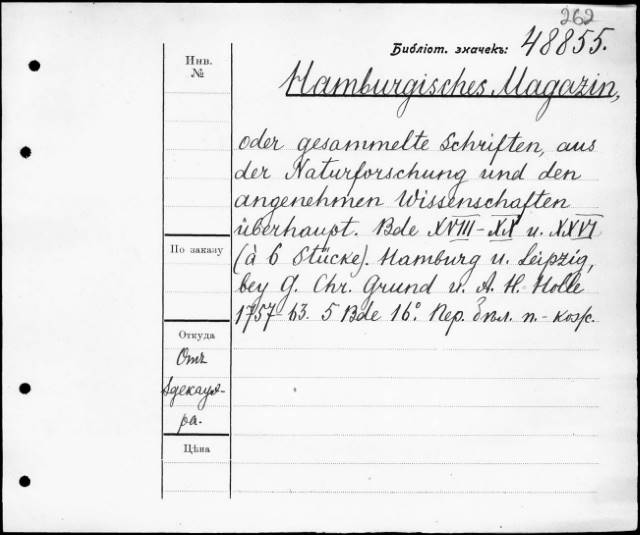 262
Библіот. значекъ: 48855.
Hamburgisches Magazin,
oder gesammelte Schriften, aus
der Naturforschung und den
angenehmen Wissenschaften
überhaupt. Bde XVIII-XX u. XXVI
(à 6 Stücke). Hamburg u. Leipzig,
bey G. Chr. Grund u. A. H. Holle
1757-63. 5 Bde 16°. Пер. бѣл. п.-кож.
Инв.
№
По заказу
Откуда
Отъ
Цѣна